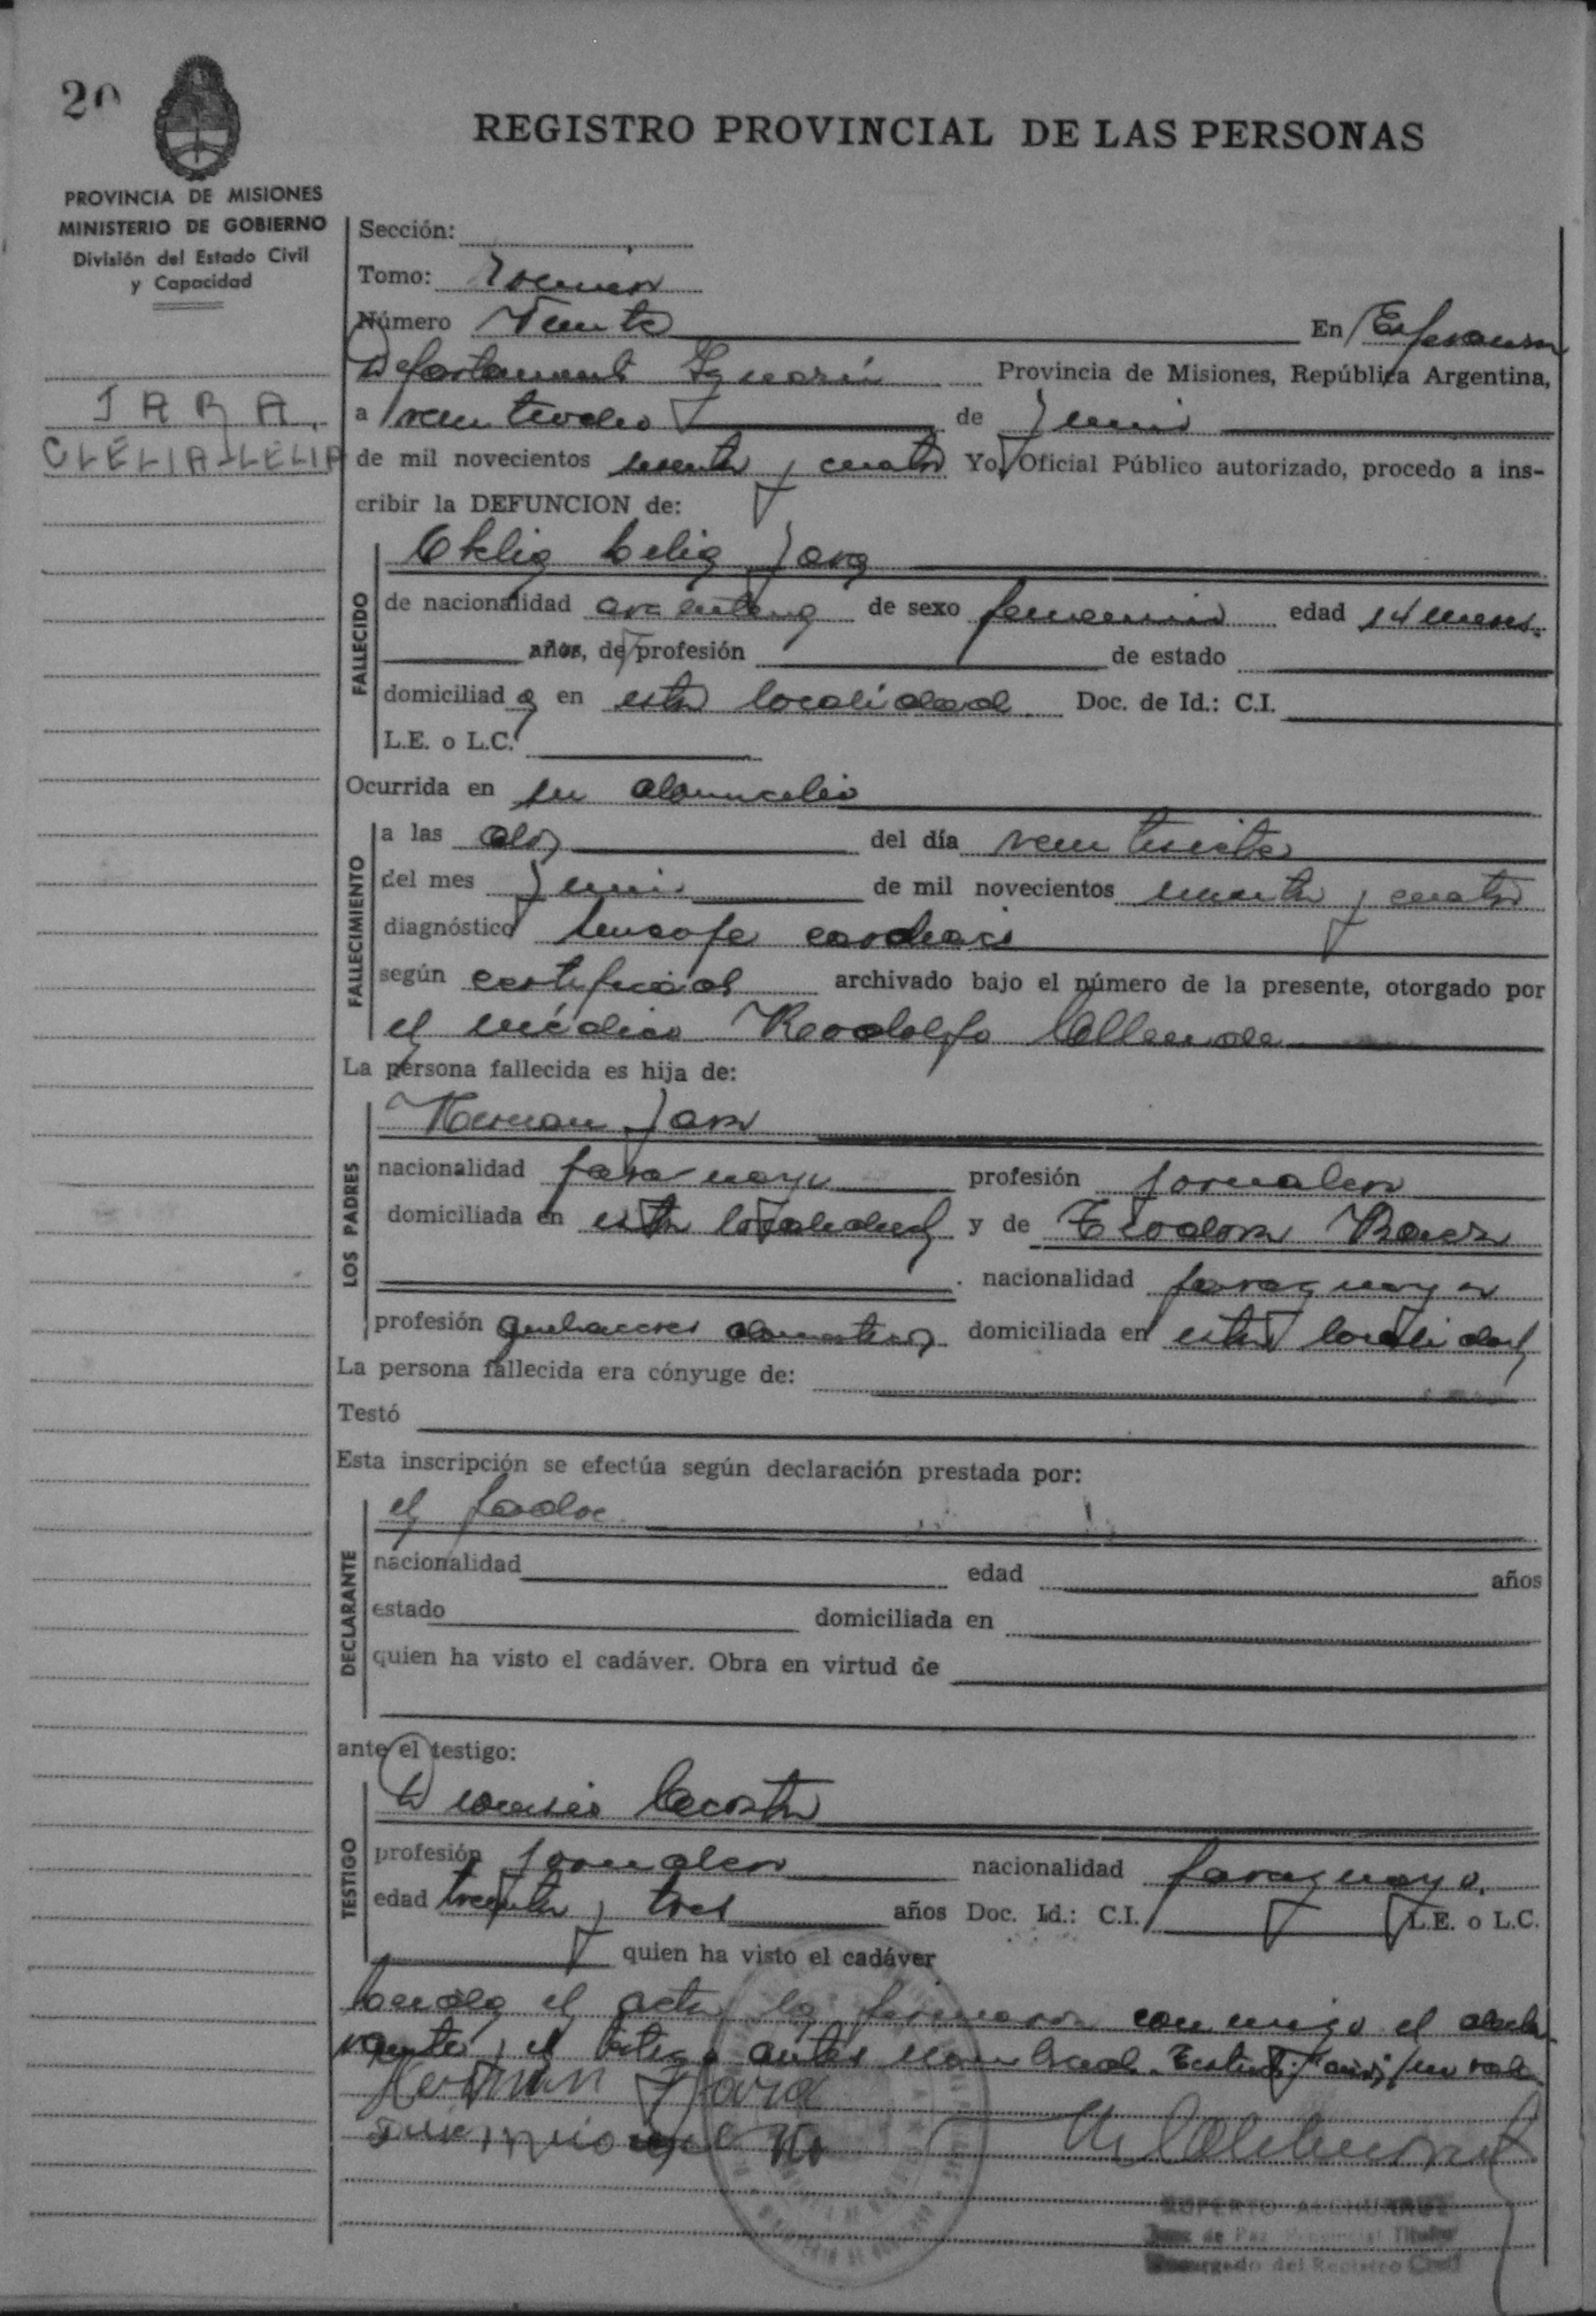 20
REGISTRO PROVINCIAL DE LAS PERSONAS
PROVINCIA DE MISIONES
MINISTERIO DE GOBIERNO
División del Estado Civil
y Capacidad
JARA,
CLELIA LELIA
Sección:
Tomo: Primero
Número Veinte En Esperanza
Departamento Iguazú Provincia de Misiones, República Argentina,
a veintiocho de Junio
de mil novecientos sesenta y cuatro Yo, Oficial Público autorizado, procedo a ins-
cribir la DEFUNCION de:
Clelia Lelia Jara
FALLECIDO
de nacionalidad argentina de sexo femenino edad 14 meses.
años, de profesión de estado
domiciliada en esta localidad Doc. de Id.: C.I.
L.E. o L.C.
Ocurrida en su domicilio
FALLECIMIENTO
a las dos del día veintisiete
del mes Junio de mil novecientos sesenta y cuatro
diagnóstico sincope cardiaco
según certificado archivado bajo el número de la presente, otorgado por
el médico Rodolfo Allende
La persona fallecida es hija de:
LOS PADRES
Herman Jara
nacionalidad paraguayo profesión jornalero
domiciliada en esta localidad y de Teodora Baez
nacionalidad paraguaya
profesión quehaceres domesticos domiciliada en esta localidad
La persona fallecida era cónyuge de:
Testó
Esta inscripción se efectúa según declaración prestada por:
DECLARANTE
el padre
nacionalidad edad años
estado domiciliada en
quien ha visto el cadáver. Obra en virtud de
ante el testigo:
TESTIGO
Dionisio Acosta
profesión jornalero nacionalidad paraguayo,
edad treinta y tres años Doc. Id.: C.I. L.E. o L.C.
quien ha visto el cadáver
Leida el acta la firmaron conmigo el decla-
rante y el testigo antes nombrado. Testado: "años" no vale
Herman Jara
Juez de Paz Provincial Titular
Encargado del Registro Civil